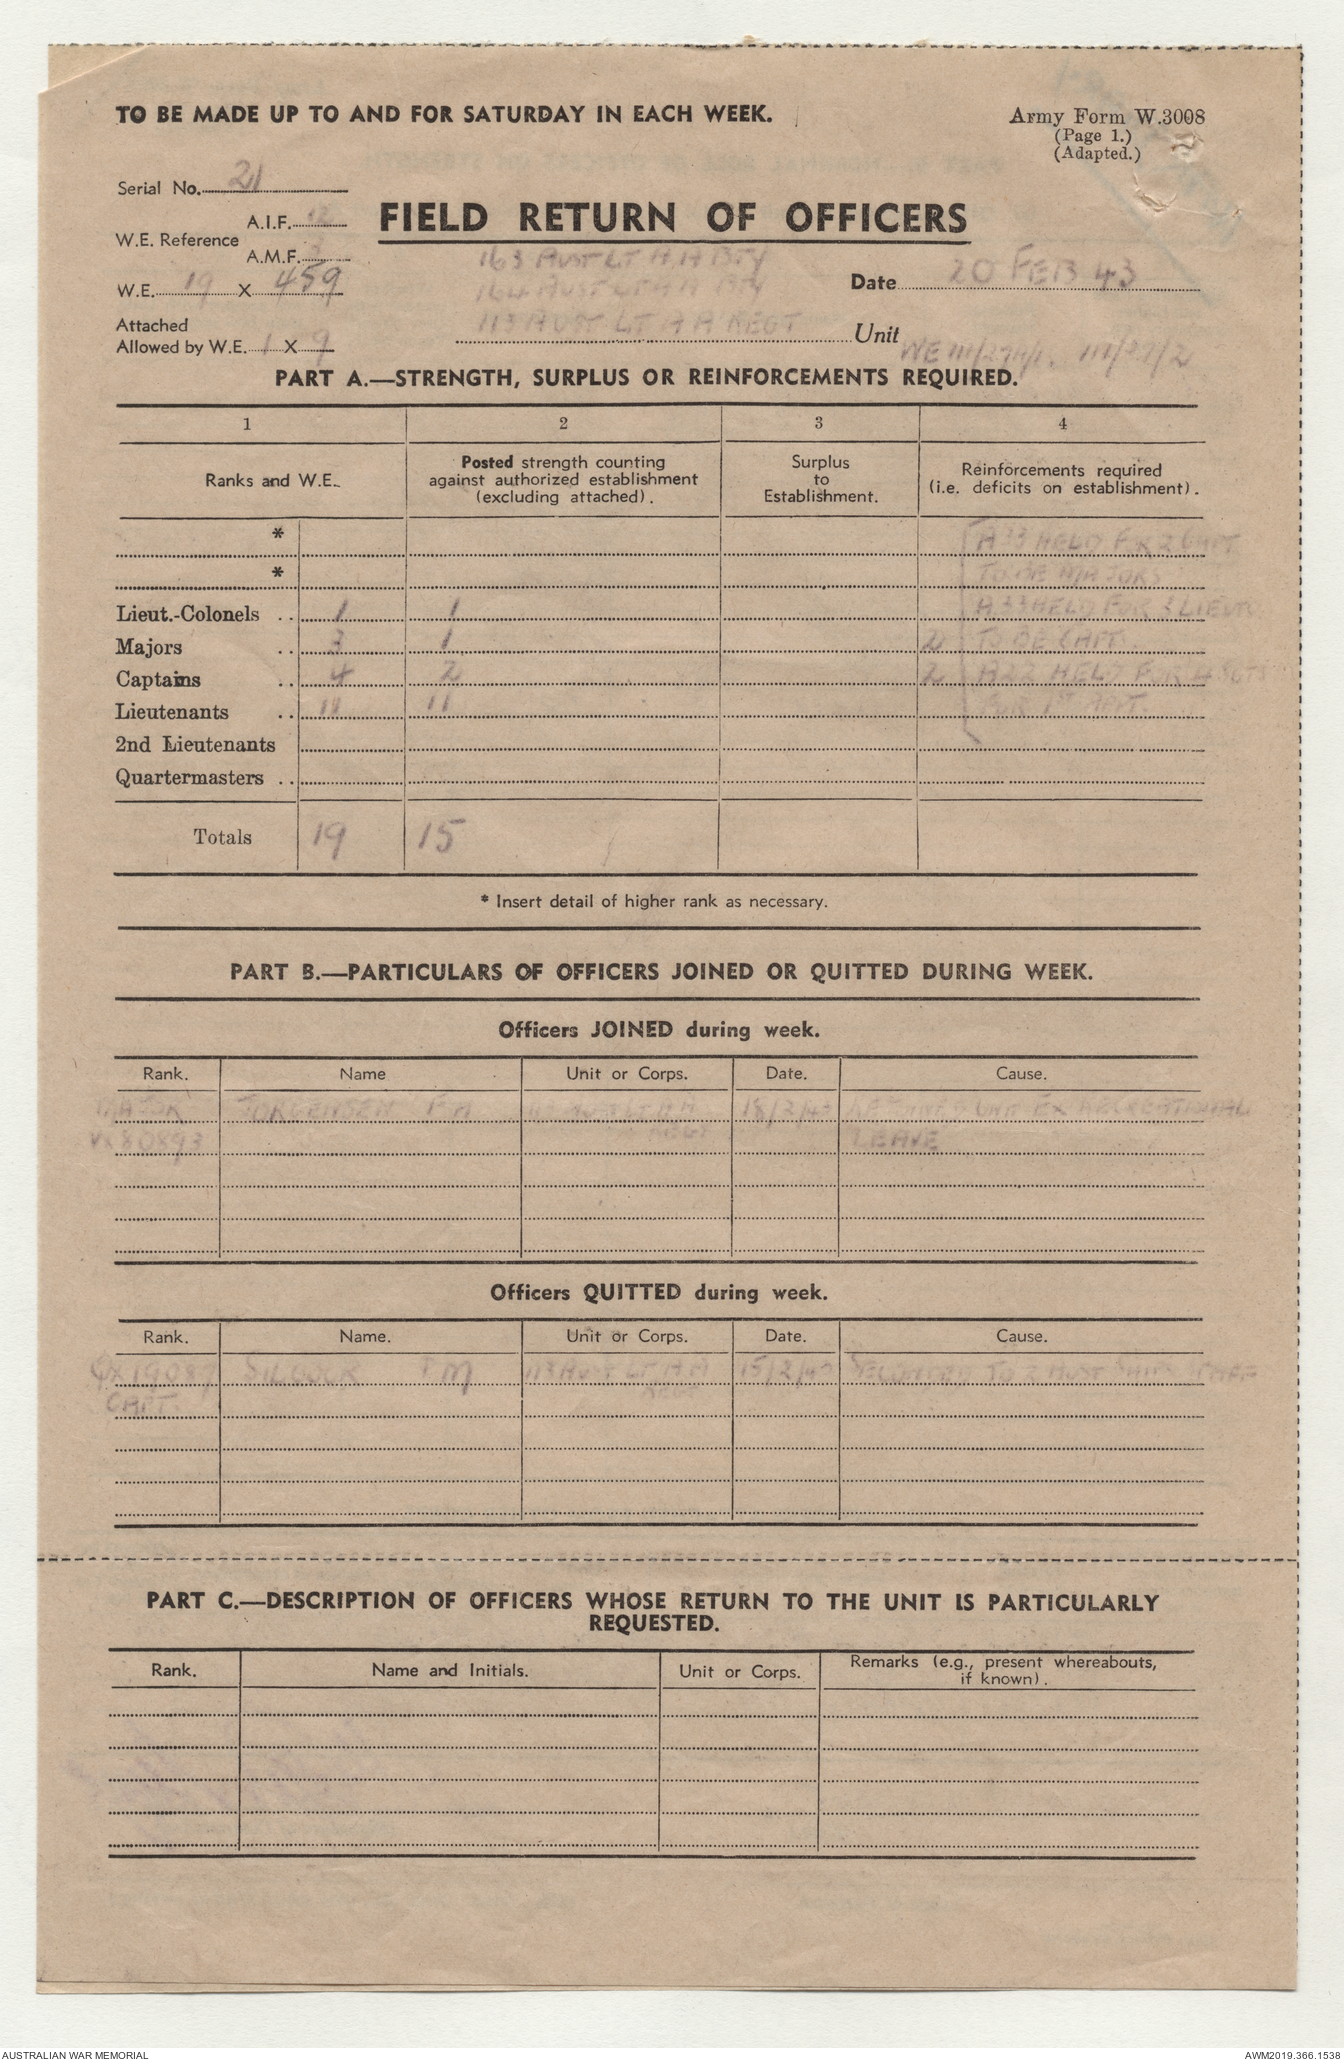 TO BE MADE UP TO AND FOR SATURDAY IN EACH WEEK.
Army Form W.3008
(Page 1.)
(Adapted.)
Serial No. 21
W.E. Reference A.I.F. 12
A.M.F.
W.E. 19 X 459
Attached
Allowed by W.E. 1 X 9
FIELD RETURN OF OFFICERS
163 AUST LT A A BTY
164 AUST LT A A BTY
113 AUST LT A A REGT Unit
Date 20 FEB 43
WE III/27A/1. III/27/2
PART A.—STRENGTH, SURPLUS OR REINFORCEMENTS REQUIRED.
1 2 3 4
Ranks and W.E.
Posted strength counting
against authorized establishment
(excluding attached).
Surplus
to
Establishment.
Reinforcements required
(i.e. deficits on establishment).
*
*
A33 HELD FOR 2 CAPT
TO BE MAJORS
A33 HELD FOR 3 LIEUTS
TO BE CAPT.
A22 HELD FOR 4 SGTS
FOR 1ST APPT.
Lieut.-Colonels .. 1 1
Majors .. 3 1 2
Captains .. 4 2 2
Lieutenants .. 11 11
2nd Lieutenants
Quartermasters ..
Totals 19 15
* Insert detail of higher rank as necessary.
PART B.—PARTICULARS OF OFFICERS JOINED OR QUITTED DURING WEEK.
Officers JOINED during week.
Rank. Name Unit or Corps. Date. Cause.
MAJOR JORGENSEN F A 113 AUST LT A A 18/2/43 RETURNED UNIT EX RECREATIONAL
VX80893 REGT LEAVE
Officers QUITTED during week.
Rank. Name. Unit or Corps. Date. Cause.
QX19087 SILCOCK M 113 AUST LT A A 15/2/43 SECONDED TO 2 AUST STAFF
CAPT. REGT
PART C.—DESCRIPTION OF OFFICERS WHOSE RETURN TO THE UNIT IS PARTICULARLY
REQUESTED.
Rank. Name and Initials. Unit or Corps. Remarks (e.g., present whereabouts,
if known).
AUSTRALIAN WAR MEMORIAL
AWM2019.366.1538